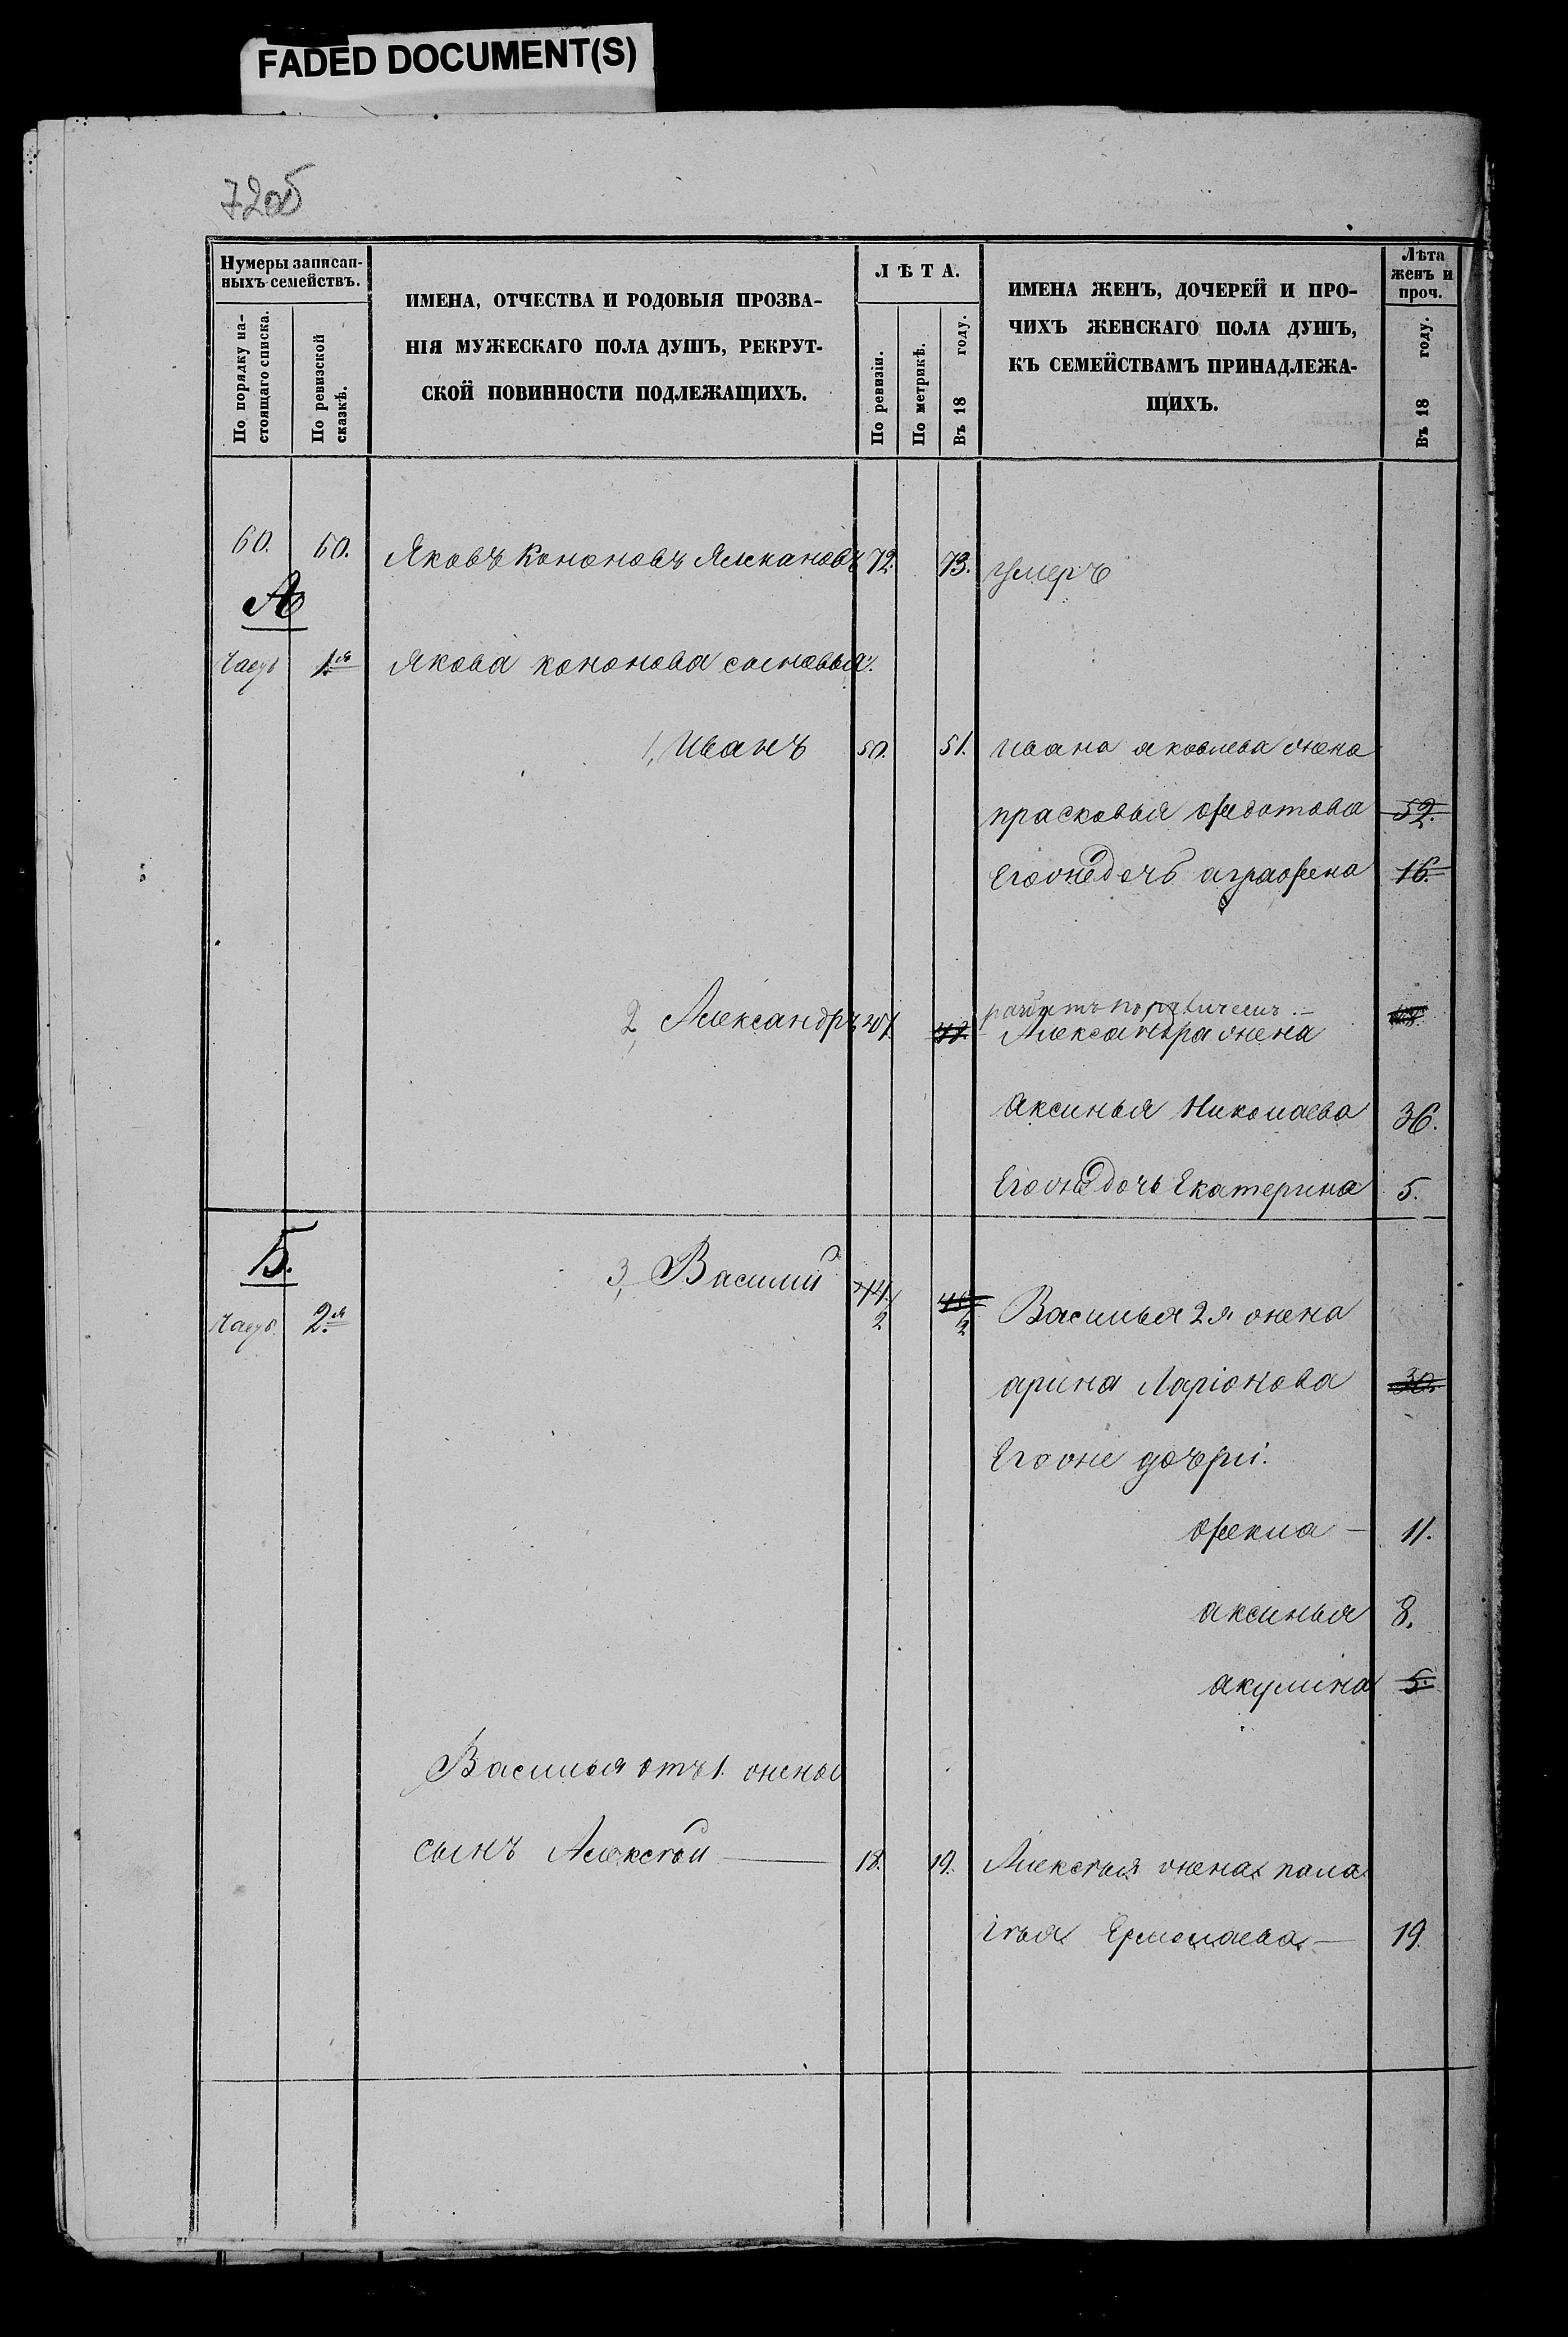 FADED DOCUMENT(S)
72об
Нумеры записан-
ныхъ семействъ.
По порядку на-
стоящаго списка.
По ревизской
сказкѣ.
ИМЕНА, ОТЧЕСТВА И РОДОВЫЯ ПРОЗВА-
НІЯ МУЖЕСКАГО ПОЛА ДУШЪ, РЕКРУТ-
СКОЙ ПОВИННОСТИ ПОДЛЕЖАЩИХЪ.
ЛѢТА.
По ревизіи.
По метрикѣ.
Въ 18 году.
ИМЕНА ЖЕНЪ, ДОЧЕРЕЙ И ПРО-
ЧИХЪ ЖЕНСКАГО ПОЛА ДУШЪ,
КЪ СЕМЕЙСТВАМЪ ПРИНАДЛЕЖА-
ЩИХЪ.
Лѣта
женъ и
проч.
Въ 18 году.
60. 60. Яковъ Кононовъ 72. 73. умеръ
А
Часть 1я Якова кононова сыновья.
1, Иванъ 50. 51. Ивана яковлева жена
прасковья федотова 52.
Его же дочь аграфена 16.
2, Александръ 47. 48. Александра жена
Аксинья Николаева 36.
Его же дочь Екатерина 5.
Б.
3, Василий 44. 45.
2 2
Часть 2я Василья 2я жена
арина Ларіонова 30.
Его же дочери.
фекла — 11.
аксинья 8.
акулина 5.
Василья отъ 1. жены
сынъ Алексѣй — 18. 19. Алексѣя жена пала
гѣя Ермолаева — 19.